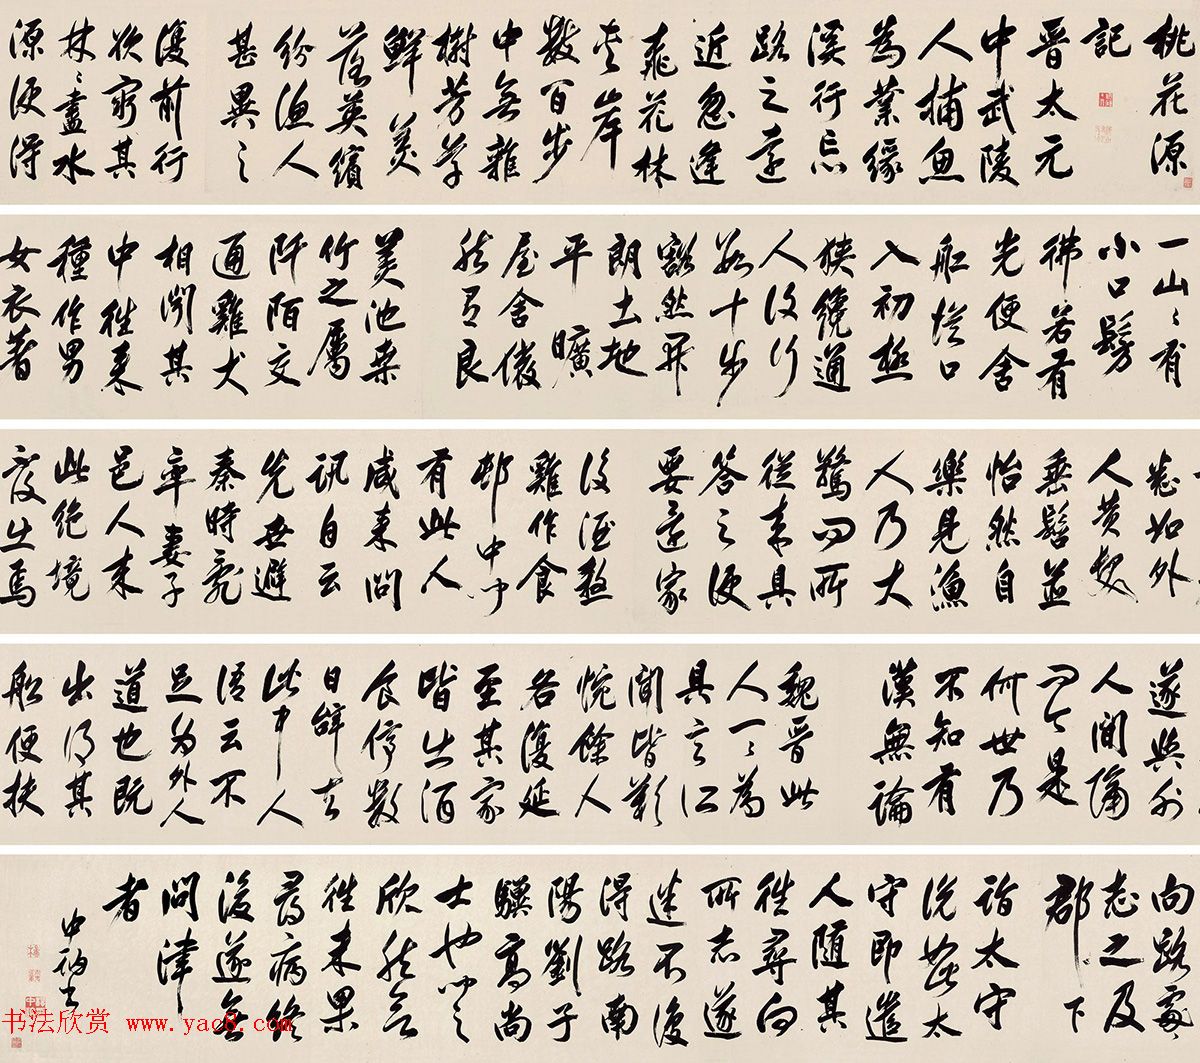 桃花源
記
晉太元
中武陵
人捕魚
為業緣
溪行忘
路之遠
近忽逢
桃花林
夾岸
數百步
中無雜
樹芳草
鮮美
落英繽
紛漁人
甚異之
復前行
欲窮其
林〻盡水
源便得
一山〻有
小口髣
彿若有
光便舍
船從口
入初極
狹纔通
人復行
數十步
豁然開
朗土地
平曠
屋舍儼
然有良
美池桑
竹之屬
阡陌交
通雞犬
相聞其
中往來
種作男
女衣著
悉如外
人黃髮
垂髫並
怡然自
樂見漁
人乃大
驚問所
從來具
答之便
要還家
設酒殺
雞作食
村中聞
有此人
咸來問
訊自云
先世避
秦時亂
率妻子
邑人來
此絕境
復出焉
遂與外
人間隔
問今是
何世乃
不知有
漢無論
魏晉此
人一〻為
具言所
聞皆歎
惋餘人
各復延
至其家
皆出酒
食停數
日辭去
此中人
語云不
足為外人
道也既
出得其
船便扶
向路處〻
志之及
郡下
詣太守
說如此太
守即遣
人隨其
往尋向
所志遂
迷不復
得路南
陽劉子
驥高尚
士也聞之
欣然
往未果
尋病終
後遂無
問津
者
书法欣赏 www.yac8.com